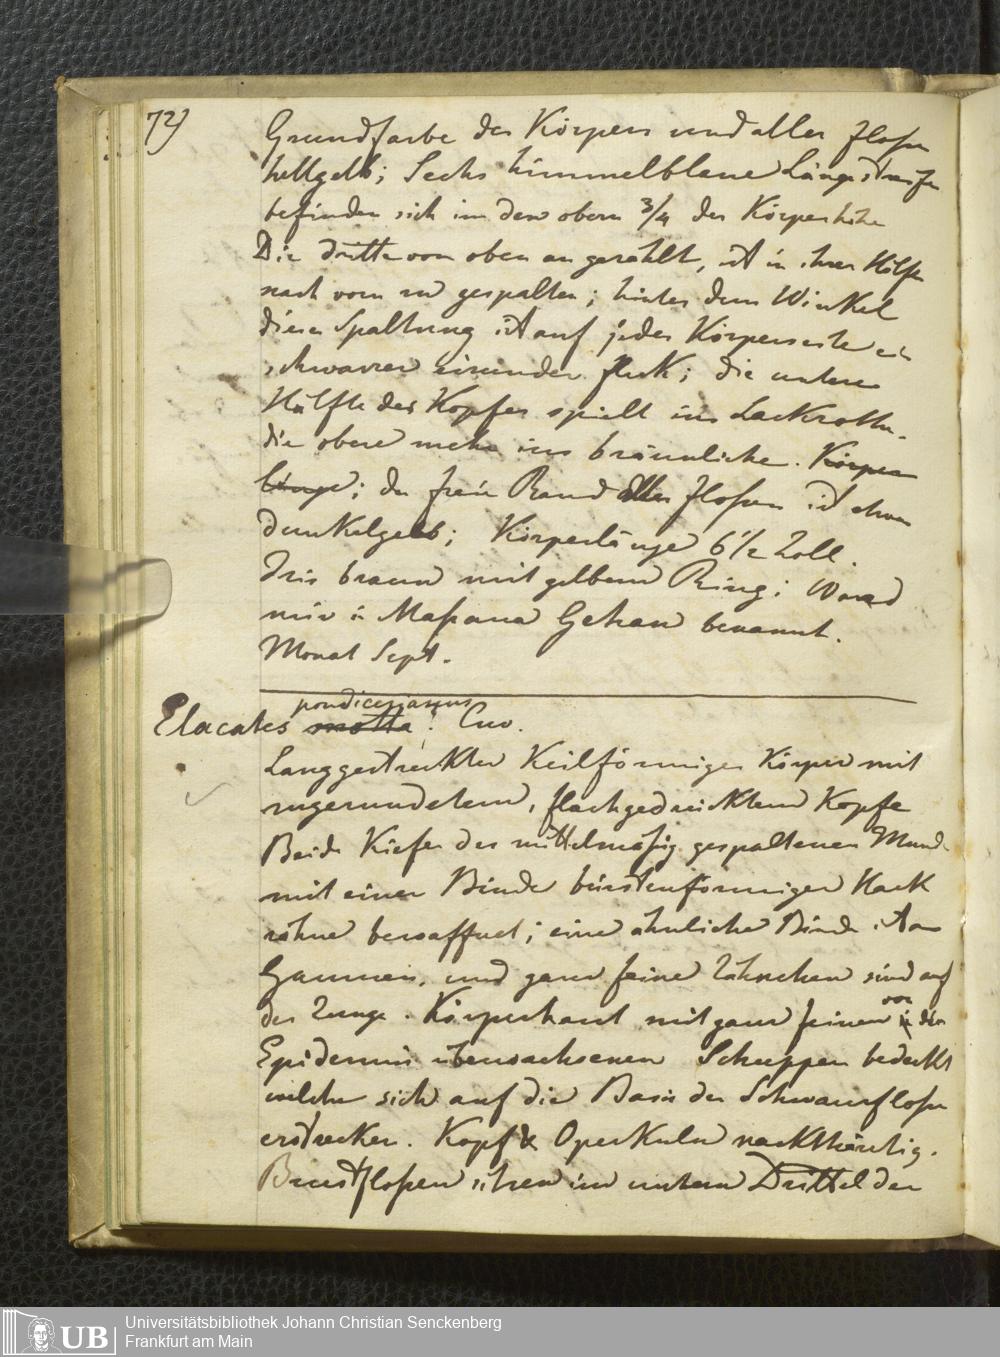 72)
Grundfarbe des Körpers und aller Floßen
hellgelb; Sechs himmelblaue Längsstreifen
befinden sich in den obern 3/4 der Körperhöhe
Die dritte von oben an gezählt, ist in ihrer Hälfte
nach vorn zu gespalten; hinter dem Winkel
dieser Spaltung ist auf jeder Körperseite ein
schwarzer eirunder Fleck; die untere
Hälfte des Kopfes spielt ins Lackrothe,
die obere mehr ins bräunliche. Körper
länge; der freie Rand aller Floßen ist etwas
dunkelgelb; Körperlänge 6 1/2 Zoll.
Iris braun mit gelbem Ring; Ward
mir in Maßaua Gehan benannt.
Monat Sept.
pondicerianus
Elacates motta: Cuv.
Langgestreckter Keilförmiger Körper mit
zugerundetem, flachgedrücktem Kopfe
Beide Kiefer des mittelmäßig gespaltenen Mund
mit einer Binde bürstenförmiger Hack
zähne bewaffnet; eine ähnliche Binde ist am
Gaumen, und ganz feine Zähnchen sind auf
der Zunge. Körperhaut mit ganz feinen von
in der
Epidermis überwachsenen Schuppen bedeckt
welche sich auf die Basis der Schwanzfloße
erstrecken. Kopf & Operkuln nackthäutig.
Brustfloßen sitzen im untern Drittel der
UB
Universitätsbibliothek Johann Christian Senckenberg
Frankfurt am Main